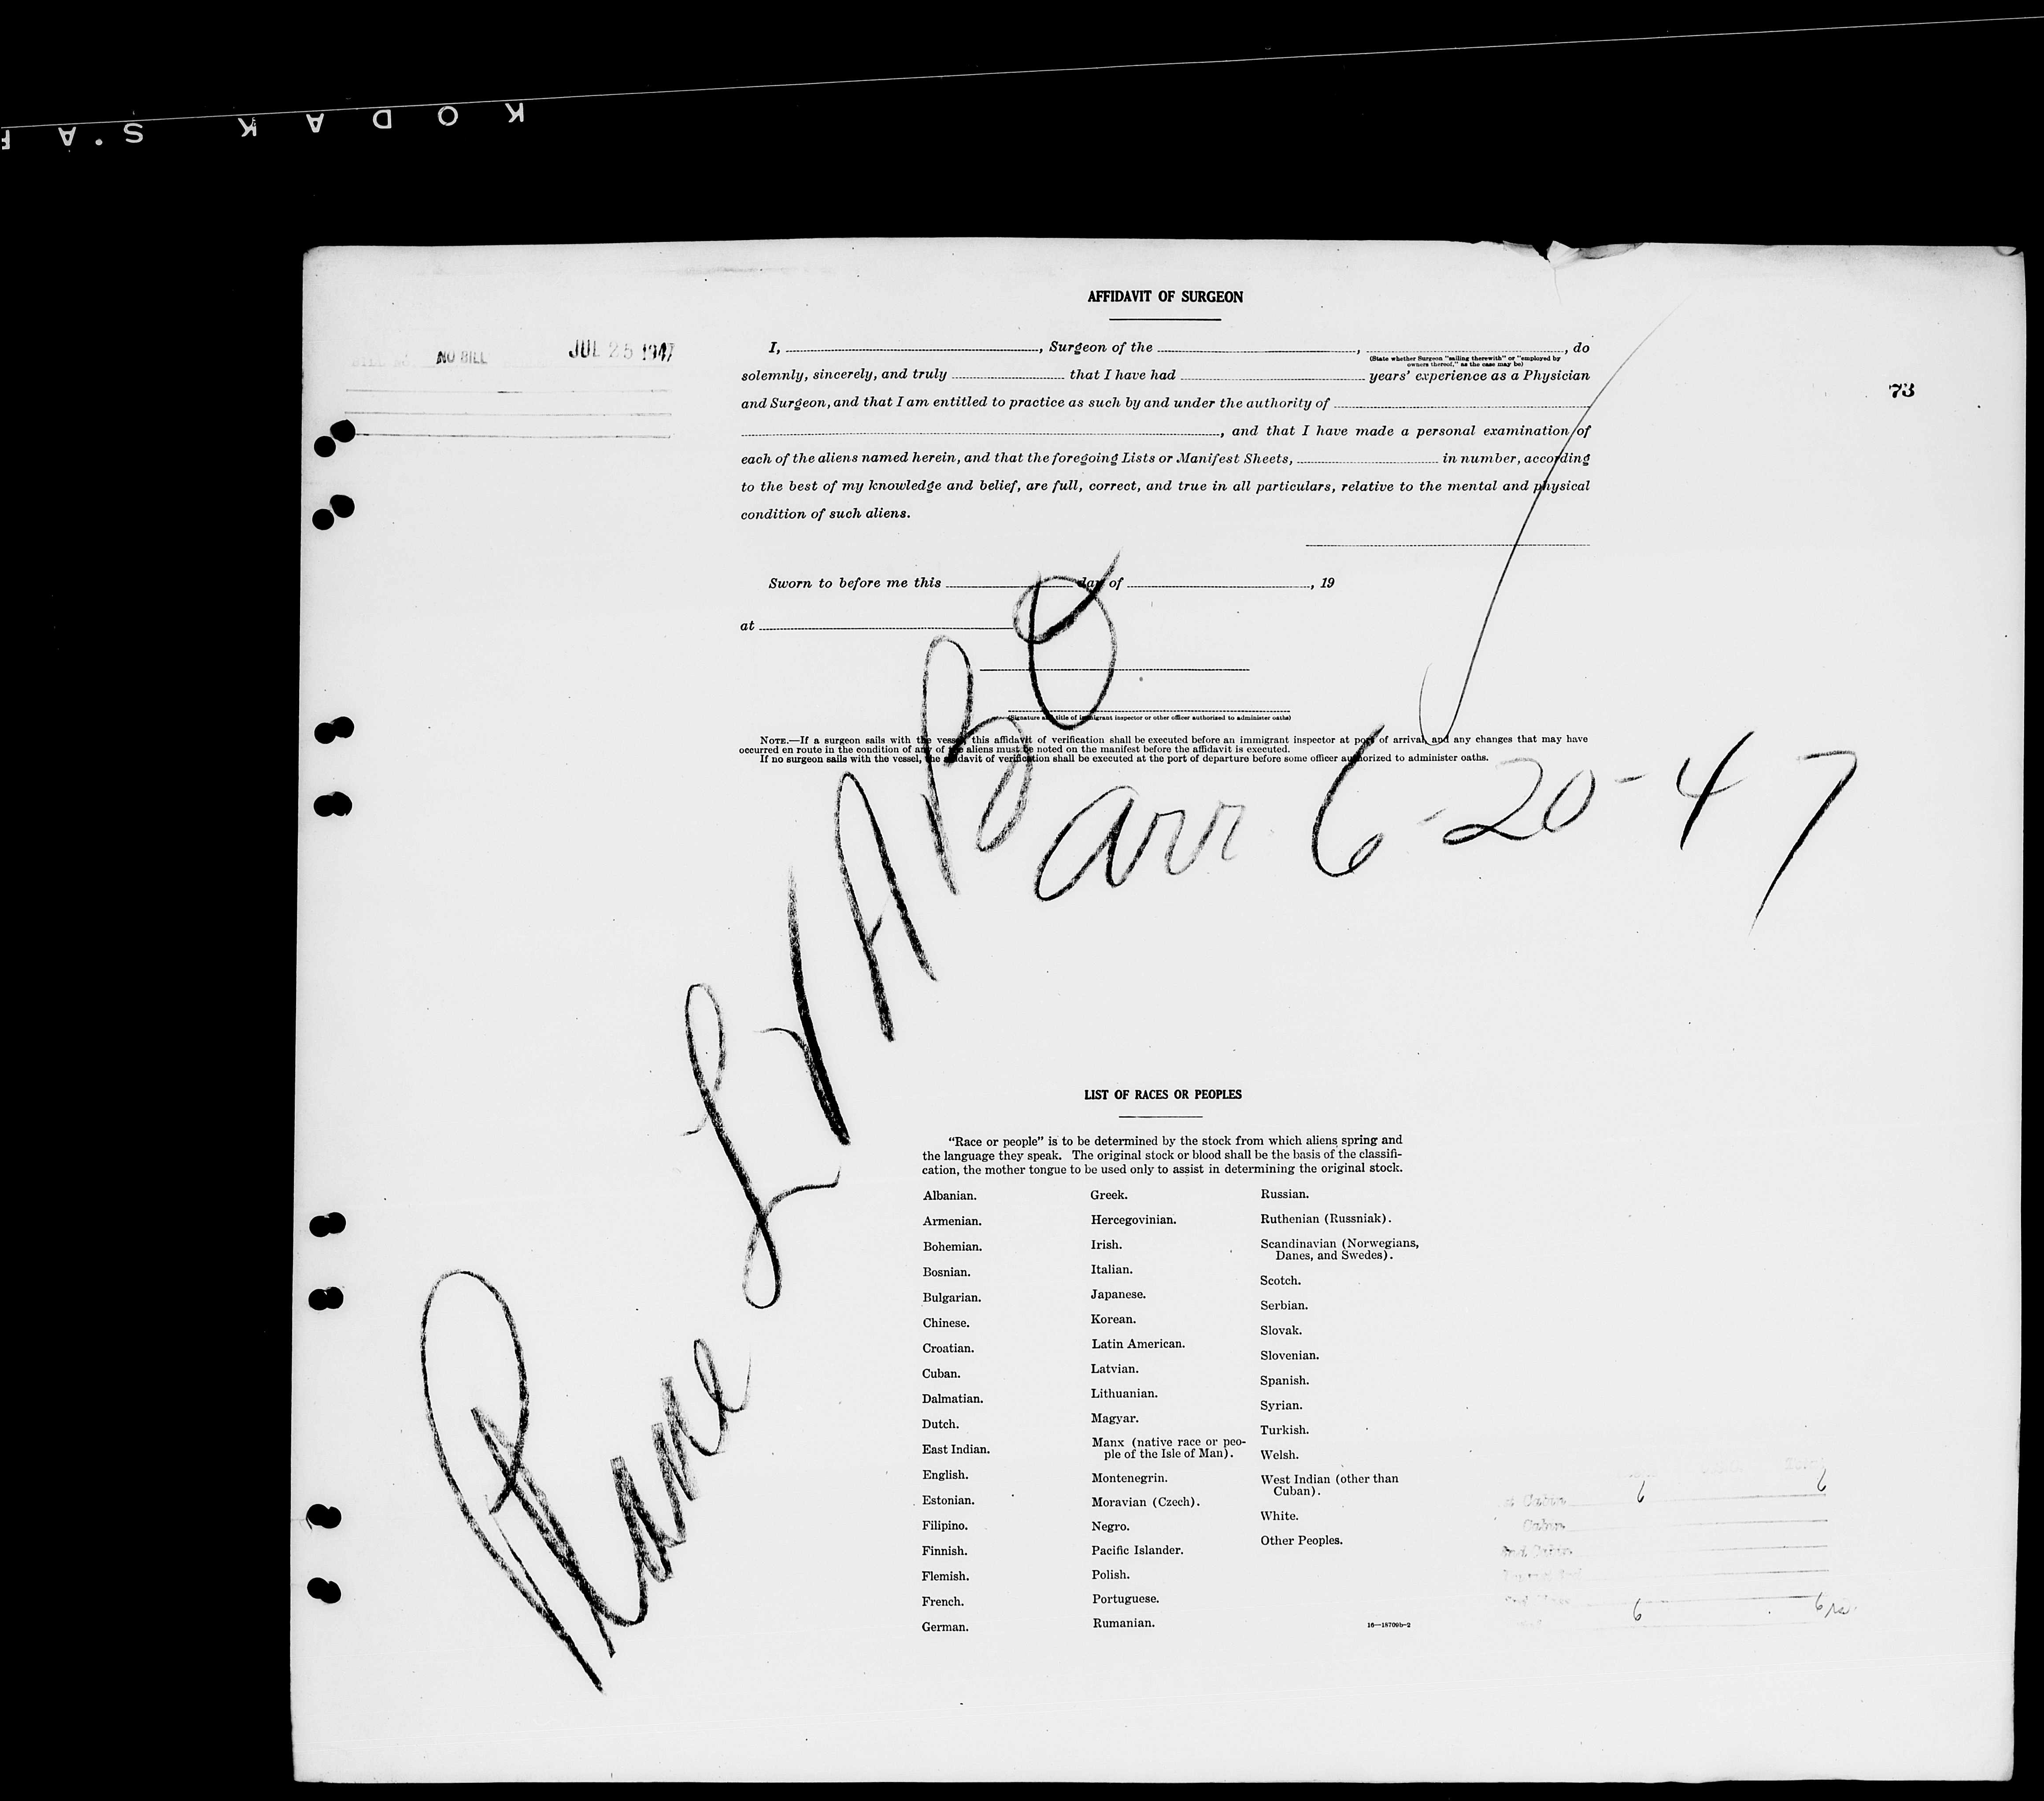 KODAK S.A F
AFFIDAVIT OF SURGEON
NO BILL JUL 25 1947
73
I, , Surgeon of the , , do
(State whether Surgeon "sailing therewith" or "employed by
owners thereof," as the case may be)
solemnly, sincerely, and truly that I have had years' experience as a Physician
and Surgeon, and that I am entitled to practice as such by and under the authority of
, and that I have made a personal examination of
each of the aliens named herein, and that the foregoing Lists or Manifest Sheets, in number, according
to the best of my knowledge and belief, are full, correct, and true in all particulars, relative to the mental and physical
condition of such aliens.
Sworn to before me this day of , 19
at
(Signature and title of immigrant inspector or other officer authorized to administer oaths)
NOTE.—If a surgeon sails with the vessel, this affidavit of verification shall be executed before an immigrant inspector at port of arrival, and any changes that may have
occurred en route in the condition of any of the aliens must be noted on the manifest before the affidavit is executed.
If no surgeon sails with the vessel, the affidavit of verification shall be executed at the port of departure before some officer authorized to administer oaths.
Plane
arr 6-20-47
LIST OF RACES OR PEOPLES
"Race or people" is to be determined by the stock from which aliens spring and
the language they speak. The original stock or blood shall be the basis of the classifi-
cation, the mother tongue to be used only to assist in determining the original stock.
Albanian.
Armenian.
Bohemian.
Bosnian.
Bulgarian.
Chinese.
Croatian.
Cuban.
Dalmatian.
Dutch.
East Indian.
English.
Estonian.
Filipino.
Finnish.
Flemish.
French.
German.
Greek.
Hercegovinian.
Irish.
Italian.
Japanese.
Korean.
Latin American.
Latvian.
Lithuanian.
Magyar.
Manx (native race or peo-
ple of the Isle of Man).
Montenegrin.
Moravian (Czech).
Negro.
Pacific Islander.
Polish.
Portuguese.
Rumanian.
Russian.
Ruthenian (Russniak).
Scandinavian (Norwegians,
Danes, and Swedes).
Scotch.
Serbian.
Slovak.
Slovenian.
Spanish.
Syrian.
Turkish.
Welsh.
West Indian (other than
Cuban).
White.
Other Peoples.
16—18709b-2
Cabin 6 6
Cabin
6 6